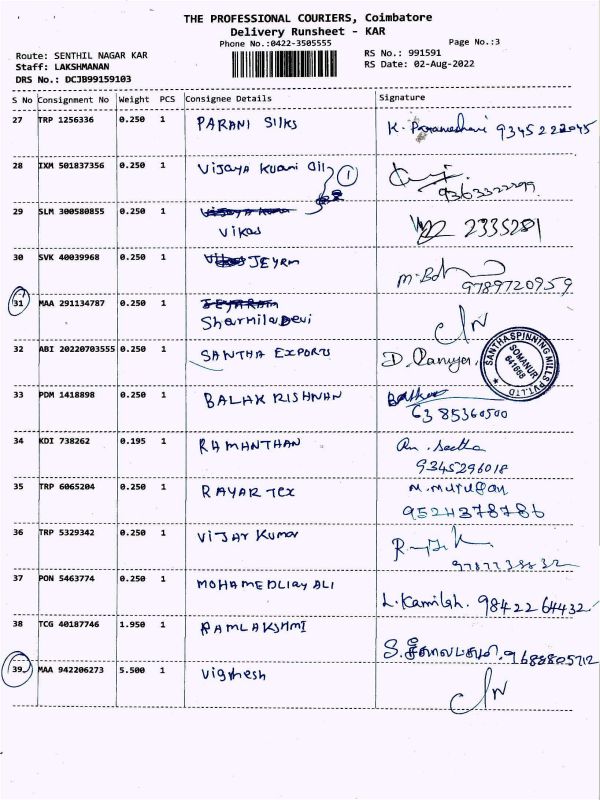 THE PROFESSIONAL COURIERS, Coimbatore
Delivery Runsheet - KAR
Phone No.:0422-3505555
Page No.:3
Route: SENTHIL NAGAR KAR
RS No.: 991591
Staff: LAKSHMANAN
RS Date: 02-Aug-2022
DRS No.: DCJB99159103
S No Consignment No Weight PCS Consignee Details Signature
27 TRP 1256336 0.250 1 PARANI SILKS
28 IXM 501837356 0.250 1 Vijaya Kumari Oil 1
9363322299
29 SLM 300580855 0.250 1 Vikas 2335281
30 SVK 40039968 0.250 1 JEYRM
9789720959
31 MAA 291134787 0.250 1 JEYARAM
Sharmila Devi
32 ABI 20220703555 0.250 1 SANTHA EXPORTS
SANTHA SPINNING MILLS PVT. LTD
SOMANUR
641668
33 PDM 1418898 0.250 1 BALAKRISHNAN
6385360500
34 KDI 738262 0.195 1 RAMANTHAN
9345296018
35 TRP 6065204 0.250 1 RAYAR TEX M. Murugan
9524378786
36 TRP 5329342 0.250 1 VIJAY Kumar
37 PON 5463774 0.250 1 MOHAMEDLIAY ALI
L. Kamilah. 9842264432
38 TCG 40187746 1.950 1 RAMLAKSHMI
9688805712
39 MAA 942206273 5.500 1 Vignesh